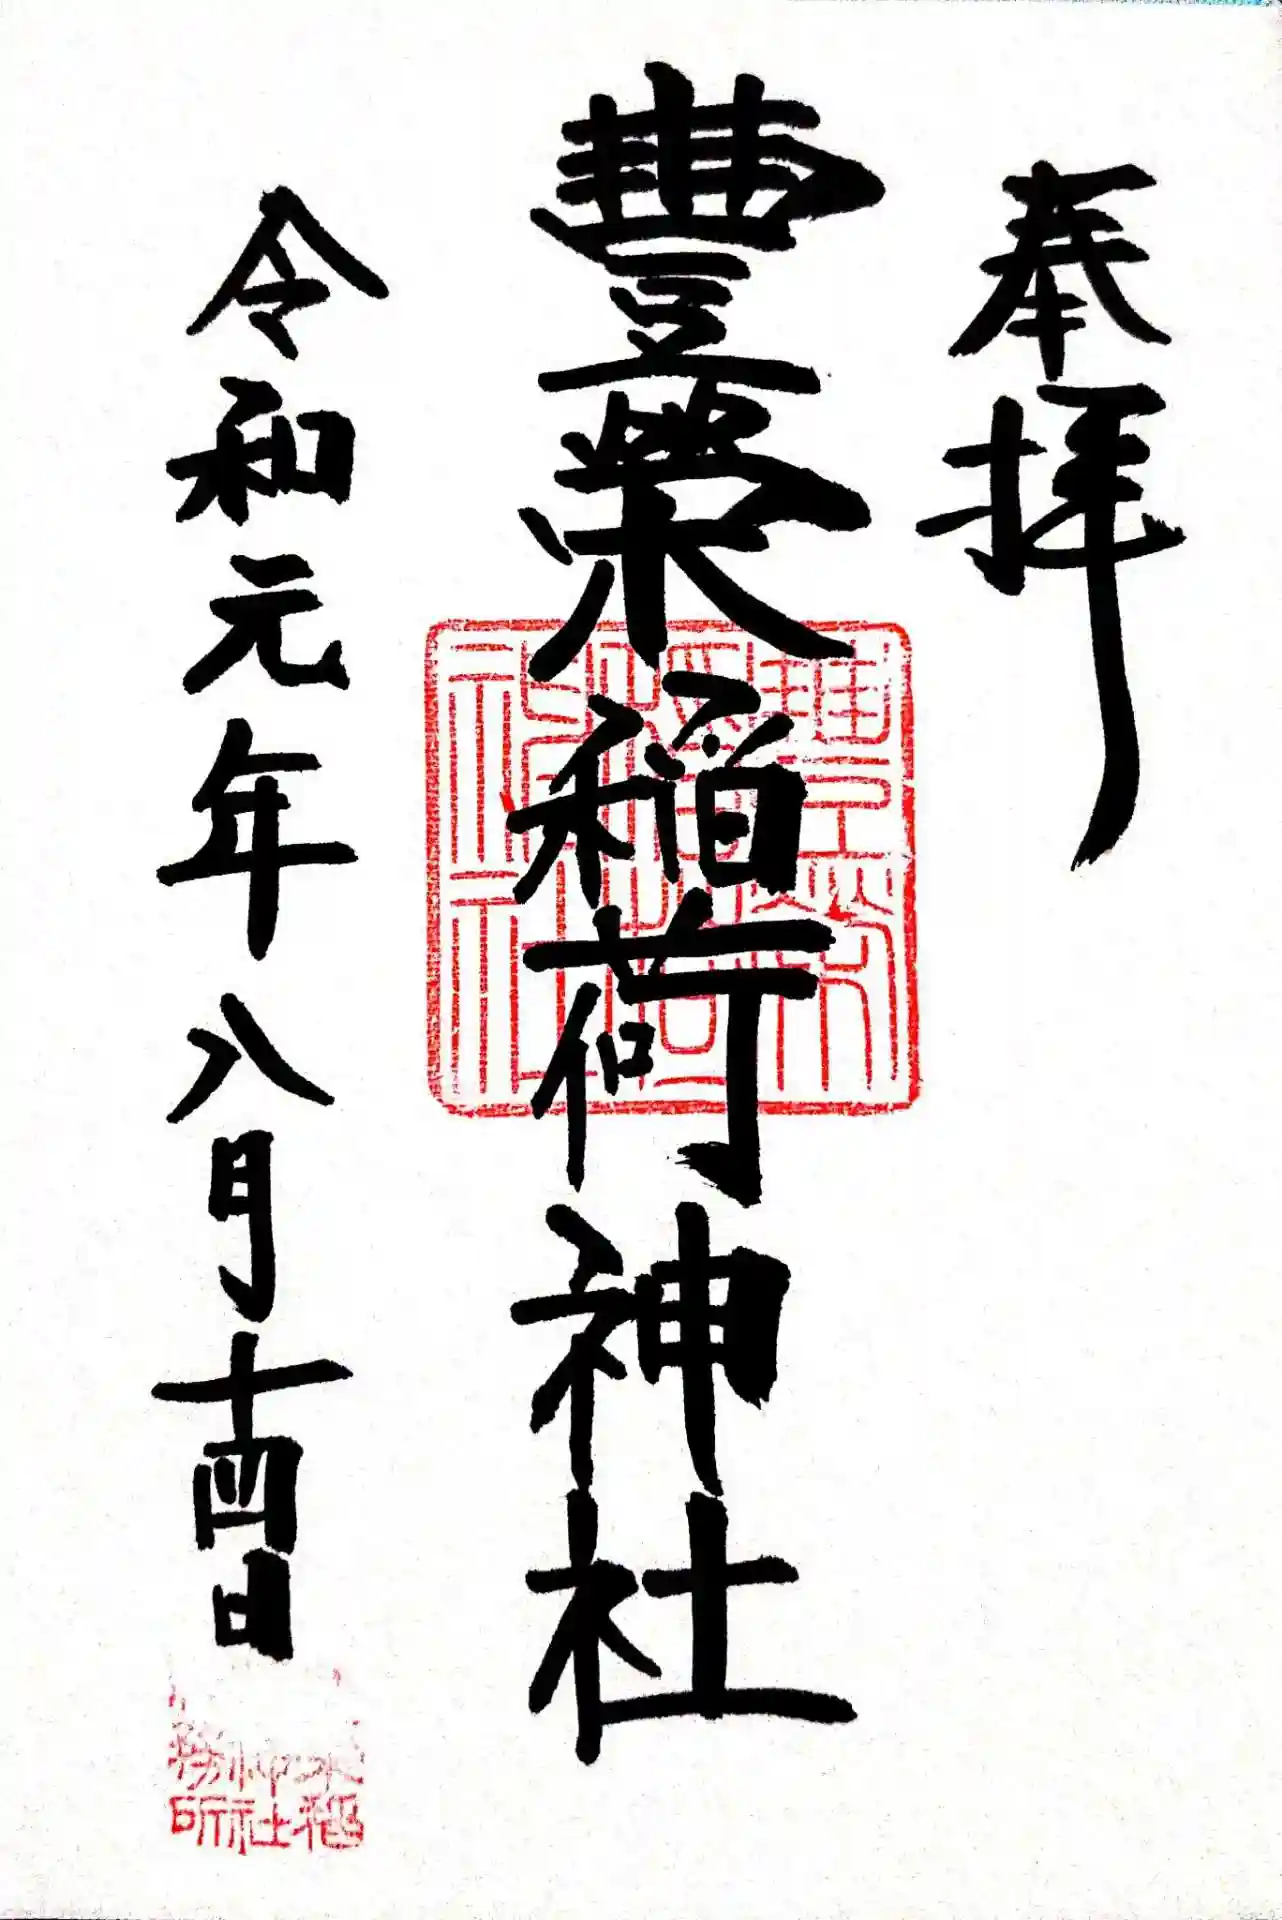 奉拝
豊榮稲荷神社
令和元年八月十四日
豊榮
稲荷
神社